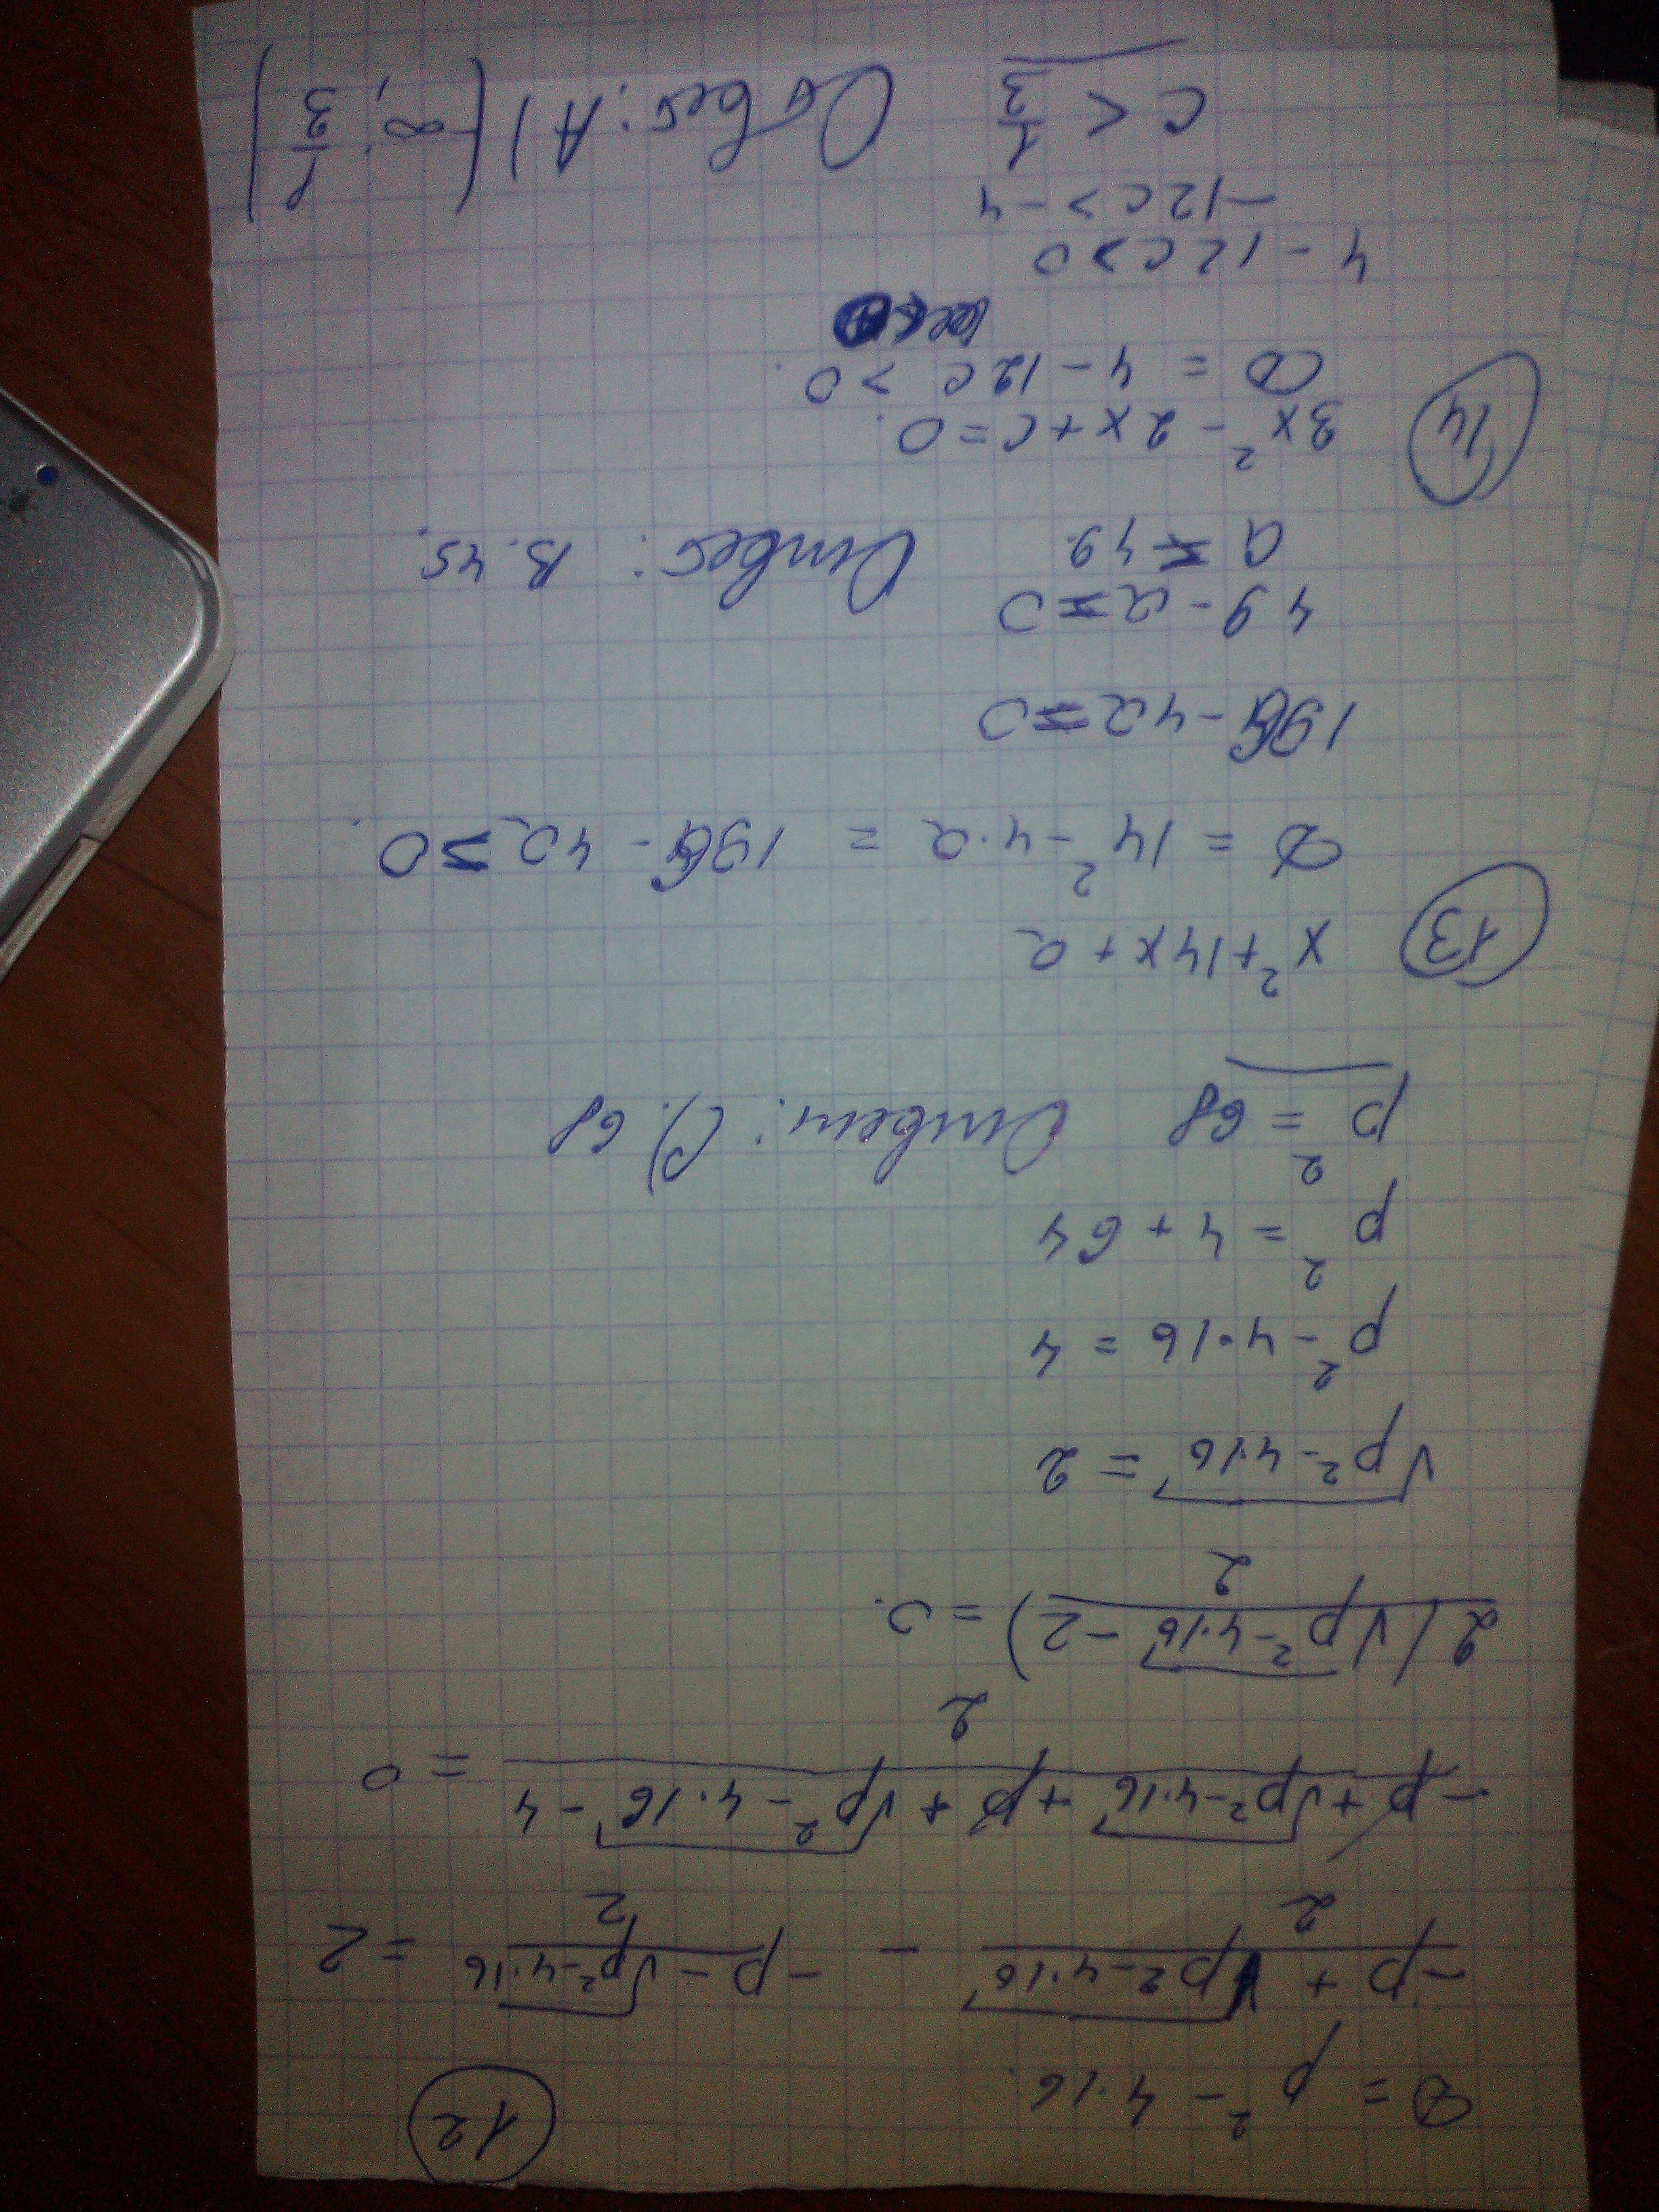 12
D = p² - 4·16.
(-p + √(p²-4·16))/2 - (-p - √(p²-4·16))/2 = 2
(-p + √(p²-4·16) + p + √(p²-4·16) - 4)/2 = 0
2(√(p²-4·16) - 2)/2 = 0.
√(p²-4·16) = 2
p² - 4·16 = 4
p² = 4 + 64
p² = 68 Ответ: C). 68
13 x² + 14x + a
D = 14² - 4·a = 196 - 4a ≥ 0.
196 - 4a = 0
49 - a = 0
a ≤ 49. Ответ: B. 45.
14 3x² - 2x + c = 0.
D = 4 - 12c > 0.
4 - 12c > 0
-12c > -4
c < 1/3 Ответ: A) (-∞; 1/3)